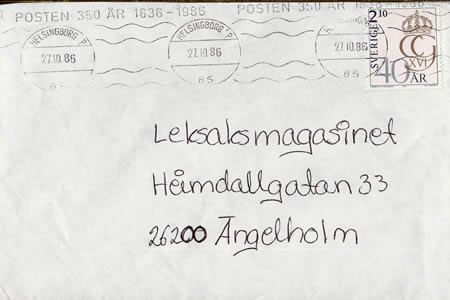 POSTEN 350 ÅR 1636-1986 POSTEN 350 ÅR 1636-1986
HELSINGBORG P HELSINGBORG P
27.10.86 27.10.86 27.10.86
85 85 85
2.10
SVERIGE
XVI
40
ÅR
Leksaksmagasinet
Heimdallgatan 33
26200 Ängelholm